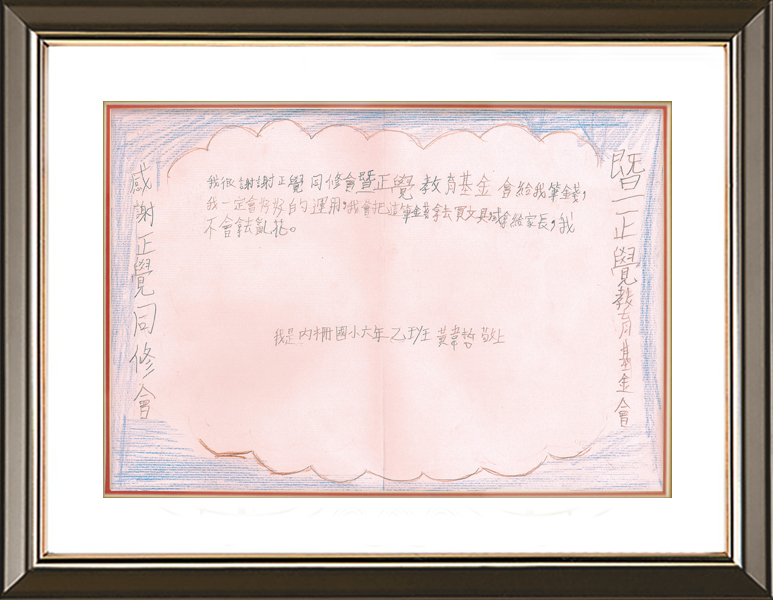 感謝正覺同修會
暨正覺教育基金會
我很謝謝正覺同修會暨正覺教育基金會給我筆金錢,
我一定會好好的運用,我會把這筆金錢拿去買文具或拿給家長,我
不會拿去亂花。
我是內柵國小六年乙班王黃韋哲敬上